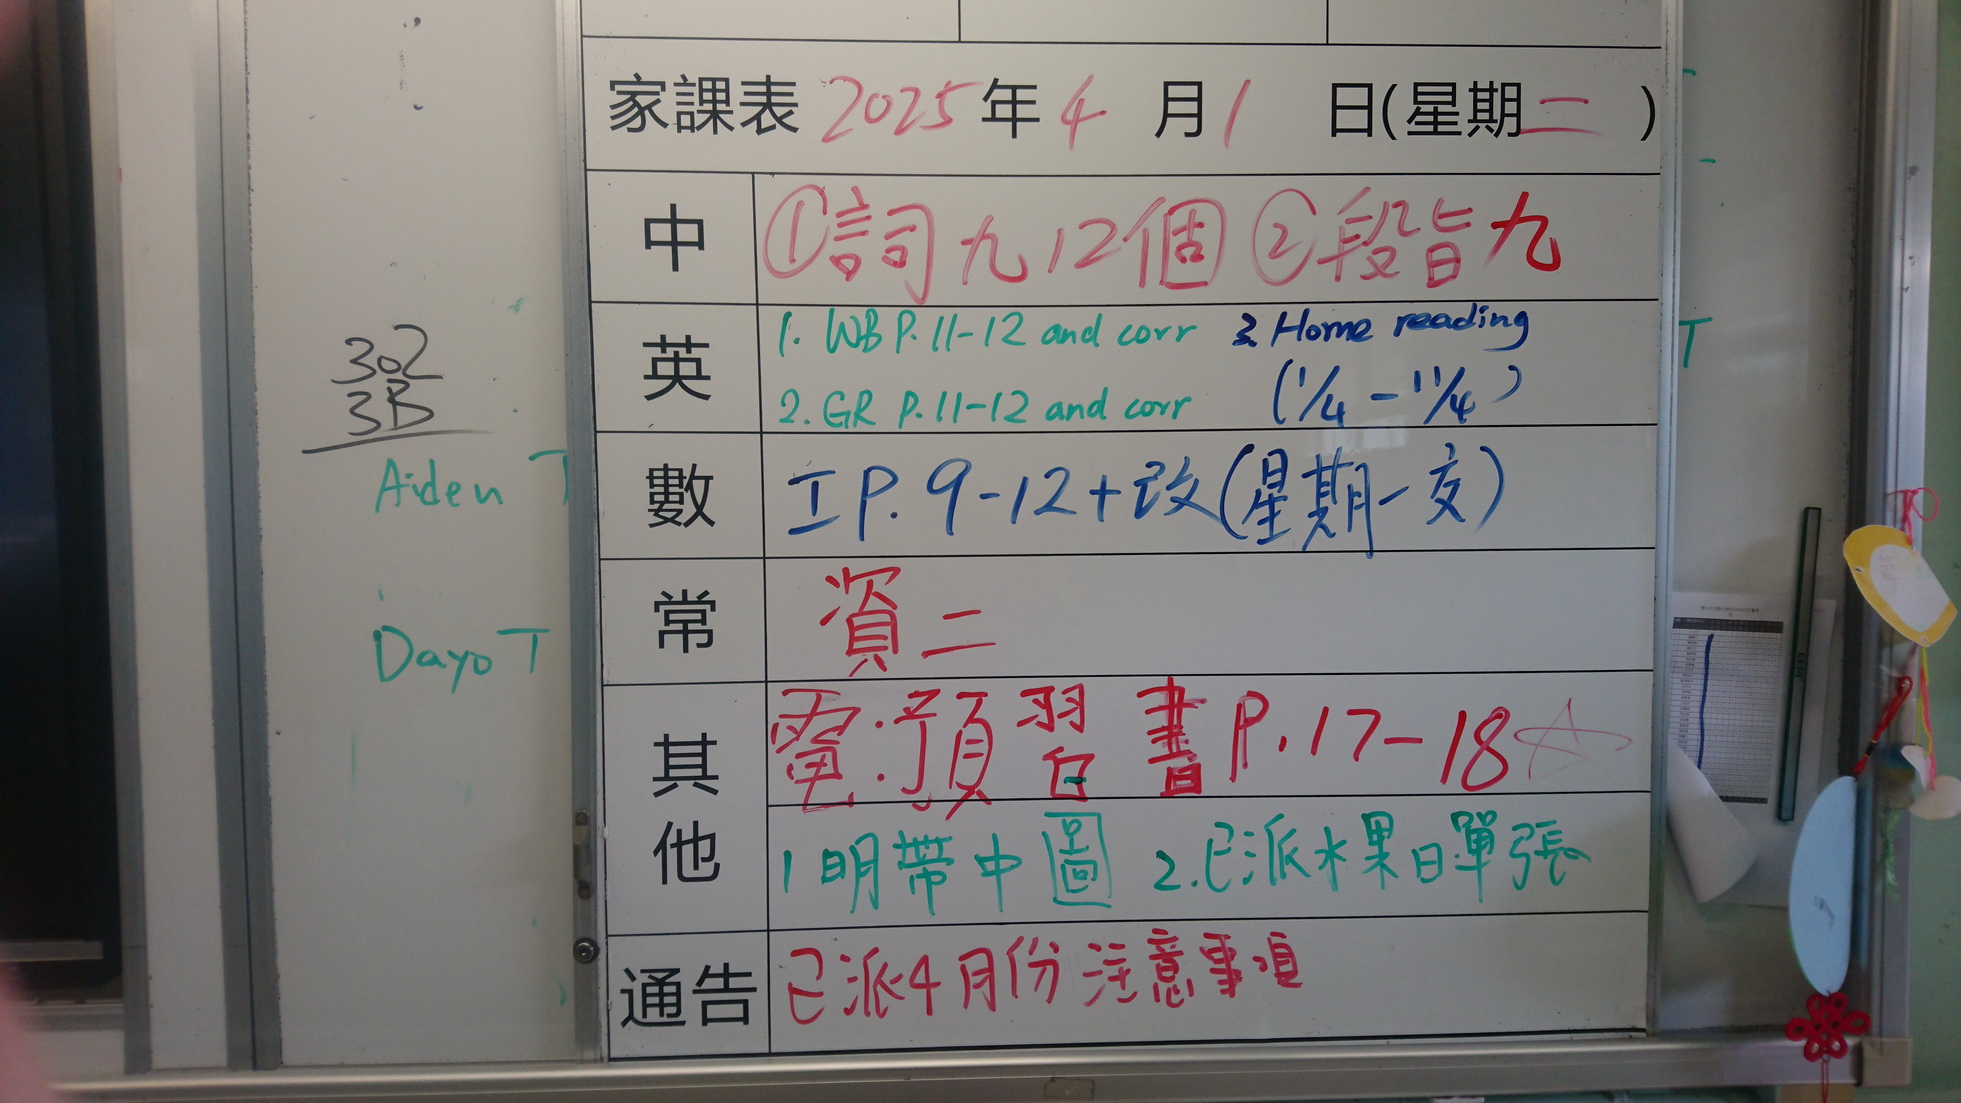 家課表 2025年4月1日(星期二)
中 ①詞九12個 ②段旨九
英 1. WB P.11-12 and corr 3. Home reading
2. GR P.11-12 and corr (1/4 - 11/4)
數 工P.9-12+改(星期一交)
常 資二
其他 電:預習書P.17-18☆
1 明帶中圖 2.已派水果日單張
通告 已派4月份注意事項
302
3B
Aiden T
Dayo T
T